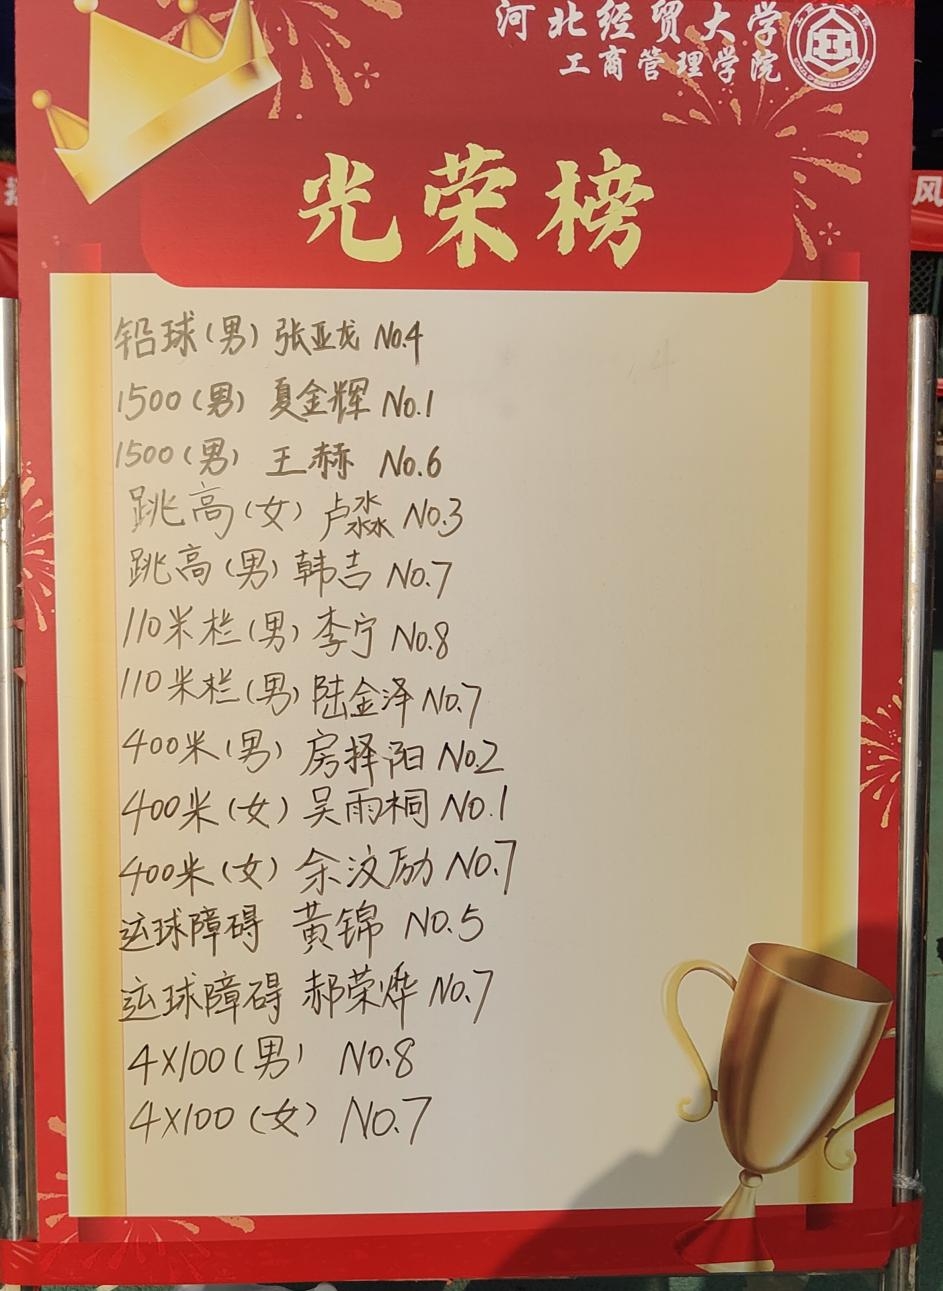 河北经贸大学
工商管理学院
光荣榜
风
铅球(男) 张亚龙 No.4
1500(男) 夏金辉 No.1
1500(男) 王赫 No.6
跳高(女) 卢淼 No.3
跳高(男) 韩吉 No.7
110米栏(男) 李宁 No.8
110米栏(男) 陆金泽 No.7
400米(男) 房择阳 No.2
400米(女) 吴雨桐 No.1
400米(女) 余汶励 No.7
运球障碍 黄锦 No.5
运球障碍 郝荣烨 No.7
4×100(男) No.8
4×100(女) No.7